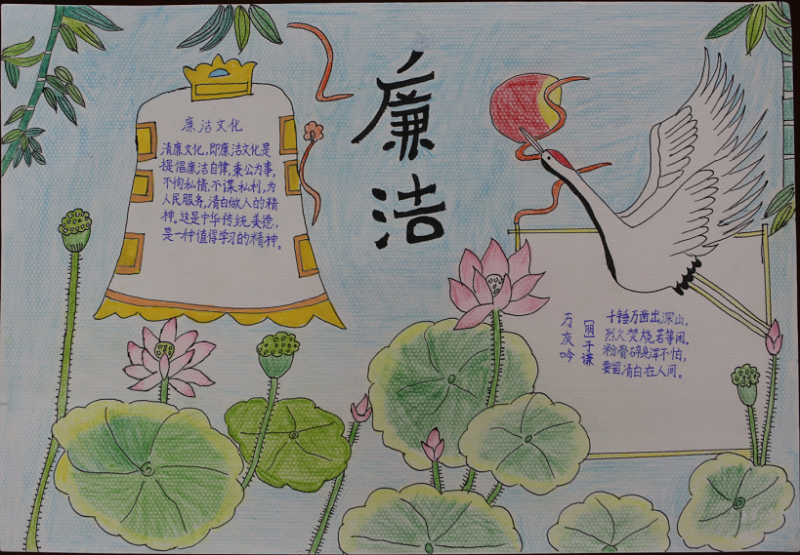 廉洁
廉洁文化
清廉文化,即廉洁文化是
提倡廉洁自律,秉公为事,
不徇私情,不谋私利,为
人民服务,清白做人的精
神,这是中华传统美德,
是一种值得学习的精神。
石灰吟
[明]于谦
千锤万凿出深山,
烈火焚烧若等闲。
粉骨碎身浑不怕,
要留清白在人间。